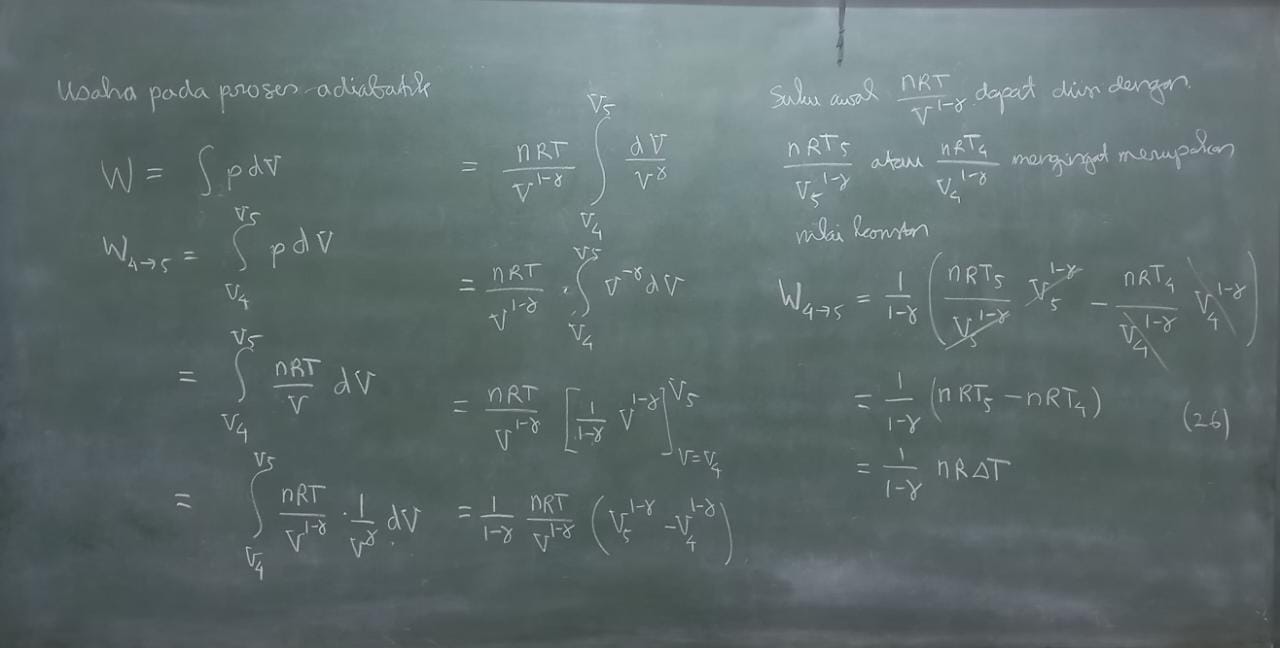 Usaha pada proses adiabatik
W = ∫ p dV
W₄→₅ = ∫_{V₄}^{V₅} p dV
= ∫_{V₄}^{V₅} nRT/V dV
= ∫_{V₄}^{V₅} nRT/V^{1-γ} · 1/V^γ dV
= nRT/V^{1-γ} ∫_{V₄}^{V₅} dV/V^γ
= nRT/V^{1-γ} · ∫_{V₄}^{V₅} V^{-γ} dV
= nRT/V^{1-γ} [1/(1-γ) V^{1-γ}]_{V=V₄}^{V₅}
= 1/(1-γ) nRT/V^{1-γ} (V₅^{1-γ} - V₄^{1-γ})
Suku awal nRT/V^{1-γ} dapat diisi dengan
nRT₅/V₅^{1-γ} atau nRT₄/V₄^{1-γ} mengingat merupakan
nilai konstan
W₄→₅ = 1/(1-γ) (nRT₅/V₅^{1-γ} V₅^{1-γ} - nRT₄/V₄^{1-γ} V₄^{1-γ})
= 1/(1-γ) (nRT₅ - nRT₄) (26)
= 1/(1-γ) nRΔT